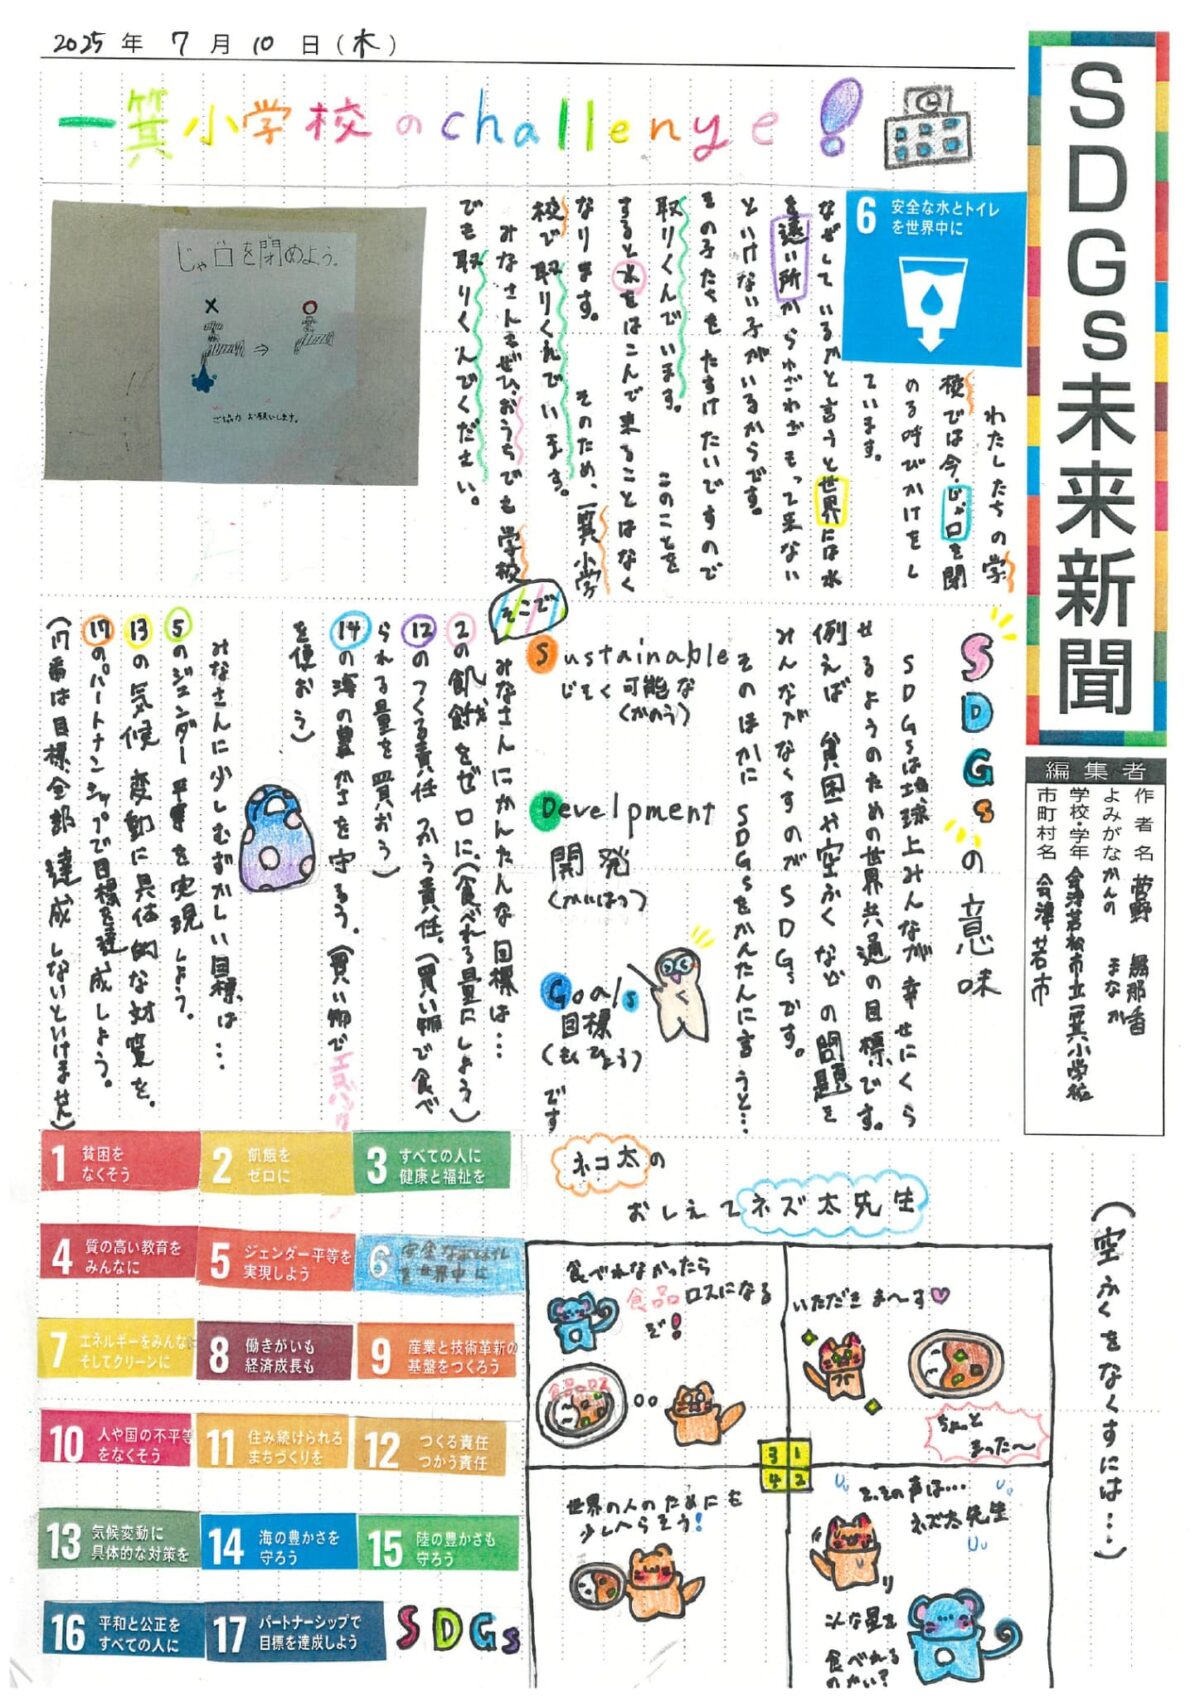 2025年 7月 10日(木)
SDGs未来新聞
編集者
作者名 菅野
よみがな かんの まなか
学校・学年 会津若松市立一箕小学校
市町村名 会津若市
一箕小学校のchallenge!
6 安全な水とトイレ
を世界中に
わたしたちの学
校では今、じゃ口を閉
める呼びかけをし
ています。
なぜしているかと言うと世界には水
を遠い所からわざわざもって来ない
といけない子がいるからです。
その子たちをたすけたいですので
取りくんでいます。 このことを
すると水をはこんで来ることはなく
なります。 そのため、一箕小学
校で取りくんでいます。
みなさんもぜひ、おうちでも学校
でも取りくんでください。
じゃ口を閉めよう。
×
○
⇒
ご協力お願いします。
SDGsの意味
SDGsは地球上みんなが幸せにくら
せるようのための世界共通の目標です。
例えば 貧困や空ふくなどの問題を
みんながなくすのがSDGsです。
そのほかに SDGsをかんたんに言うと…
Sustainable
じぞく可能な
(かのう)
Develpment
開発
(かいはつ)
Goals
目標
(もくひょう)です
そこで
みなさんにかんたんな目標は…
2の飢餓をゼロに、(食べれる量にしよう)
12のつくる責任 つかう責任。(買い物で食べ
られる量を買おう)
14の海の豊かさを守ろう。(買い物でエコバック
を使おう)
みなさんに少しむずかしい目標は…
5のジェンダー平等を実現しよう。
13の気候変動に具体的な対策を。
17のパートナンシップで目標を達成しよう。
(17番は目標全部達成しないといけません)
1 貧困を
なくそう
2 飢餓を
ゼロに
3 すべての人に
健康と福祉を
4 質の高い教育を
みんなに
5 ジェンダー平等を
実現しよう
6 安全な水とトイレ
を世界中に
7 エネルギーをみんな
そしてクリーンに
8 働きがいも
経済成長も
9 産業と技術革新の
基盤をつくろう
10 人や国の不平等
をなくそう
11 住み続けられる
まちづくりを
12 つくる責任
つかう責任
13 気候変動に
具体的な対策を
14 海の豊かさを
守ろう
15 陸の豊かさも
守ろう
16 平和と公正を
すべての人に
17 パートナーシップで
目標を達成しよう
SDGs
(空ふくをなくすには…)
ネコ太の
おしえてネズ太先生
1
いただきま～す♡
ちょっと
まった～
2
そ、その声は…
ネズ太先生
こんな量を
食べれる
のかい?
3
食べれなかったら
食品ロスになる
ぞ!
食品ロス
4
世界の人のためにも
少しへらそう!